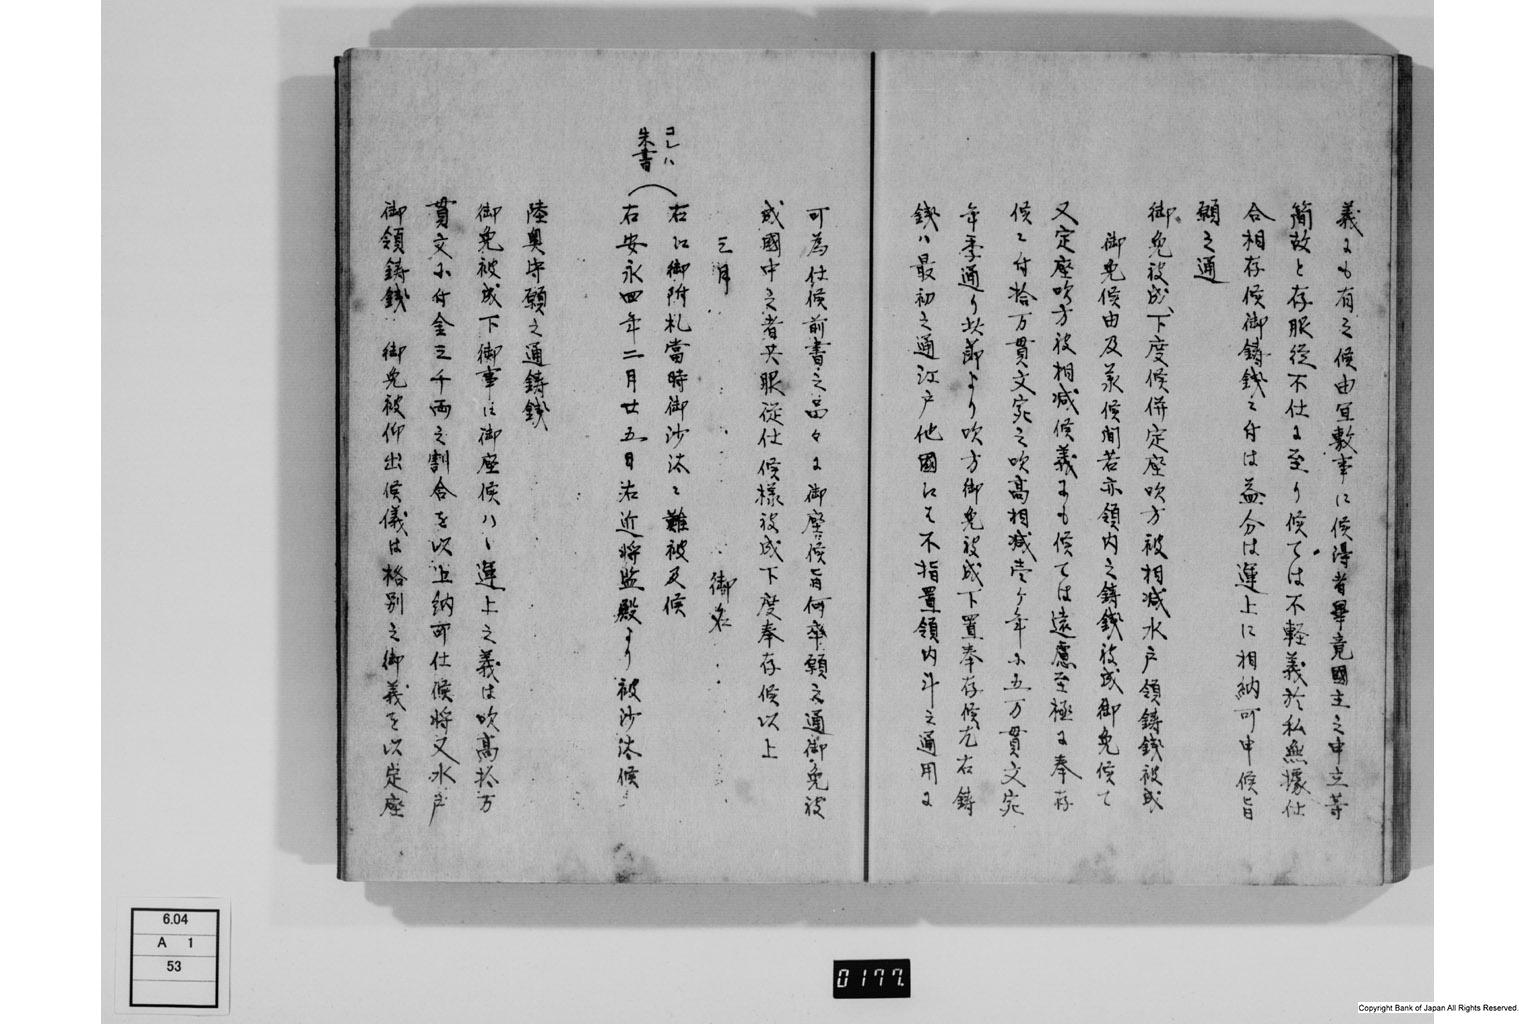 義にも有之候由宜敷事に候得者畢竟國主之申立等
簡故と存服從不仕に至り候ては不軽義於私無據仕
合相存候御鑄銭に付は益分は運上に相納可申候旨
願之通
御免被成下度候併定座吹方被相減水戸領鑄銭被成
御免候由及承候間若亦領内之鑄銭被成御免候て
又定座吹方被相減候義にも候ては遠慮至極に奉存
候に付拾万貫文宛之吹高相減壱ケ年に五万貫文宛
年季通り此節より吹方御免被成下置奉存候尤右鑄
銭ハ最初之通江戸他國江も不指置領内斗之通用に
可為仕候前書之品々に御座候旨何卒願之通御免被
成國中之者共服從仕候様被成下度奉存候以上
三月 御名
コレハ
朱書
右江御附札當時御沙汰に難被及候
右安永四年二月廿五日右近将監殿より被沙汰候
陸奥守願之通鑄銭
御免被成下御事に御座候ハヽ運上之義は吹高拾万
貫文に付金三千両之割合を以上納可仕候将又水戸
御領鑄銭 御免被仰出候儀は格別之御義を以定座
6.04
A 1
53
0177.
Copyright Bank of Japan All Rights Reserved.